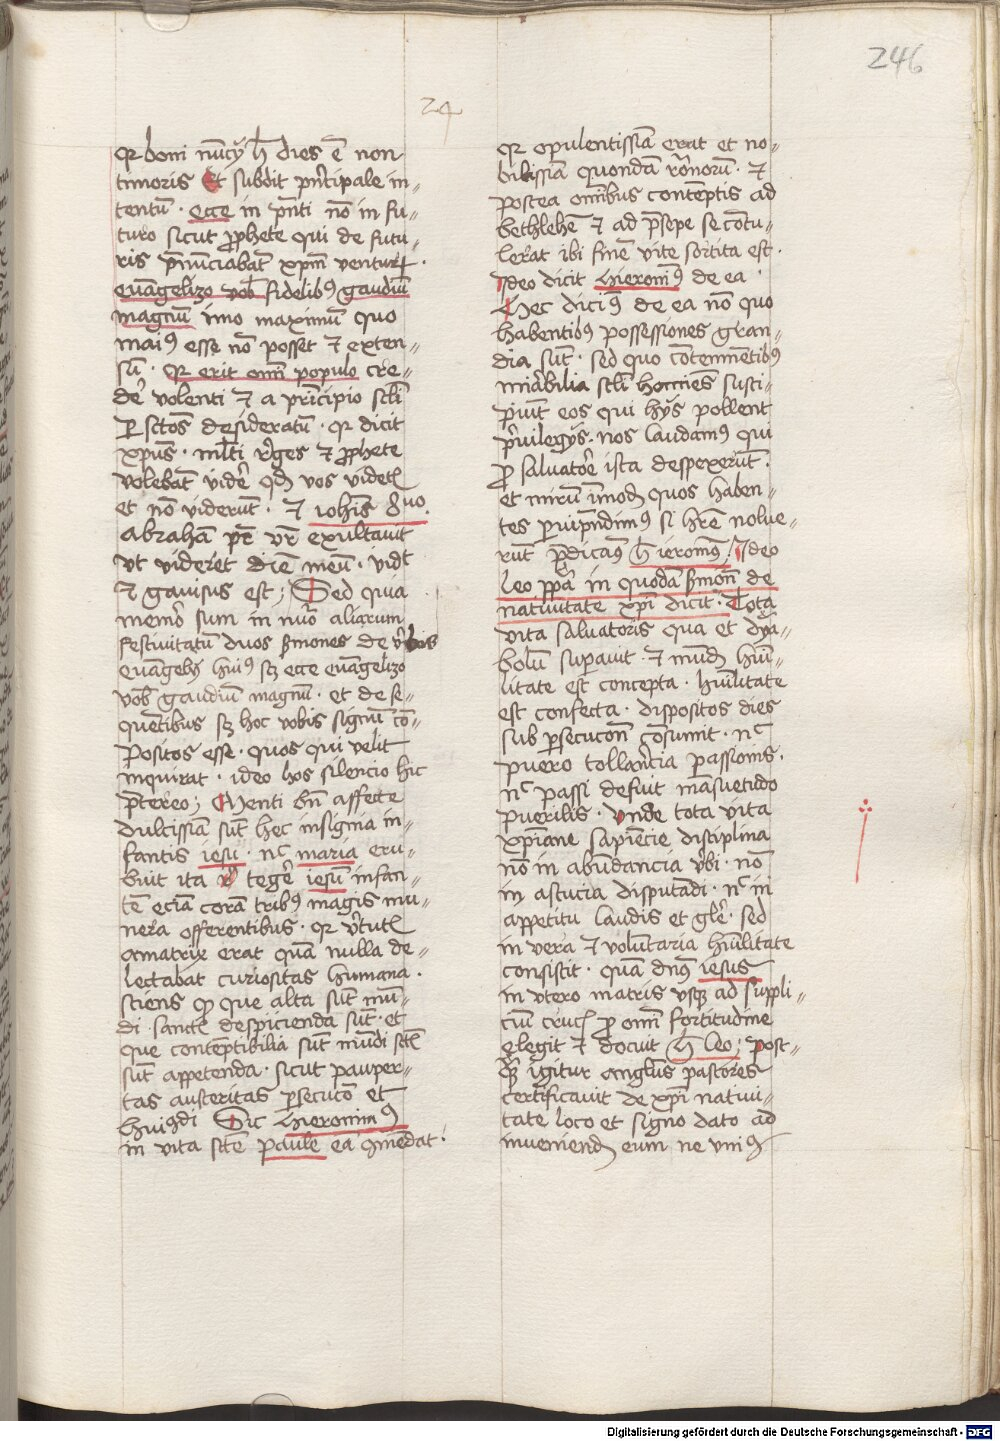 246
24
qꝛ boni nūcij h̄ dies ē non
timoris Et subdit pn̄cipale in„
tentū · ecce in pn̄ti nō in fu„
turo sicut ꝓphete qui de futu„
ris p̄nūciabāt xpm̄ venturū ·
euāgelizo vob̄ fidelibꝰ gaudiū
magnū imo maximū quo
maiꝰ esse nō posset ⁊ exten„
sū · qꝛ erit om̄i populo cre„
dēr volenti ⁊ a prīcipio scl̄i
ꝑ sctōs desideratū · qꝛ dicit
xpūs · ml̄ti r̄ges ⁊ ꝓphete
volebāt vidēr qd̄ vos videtꝭ
et nō viderūt · ⁊ ioh̄is 8uo.
abrahā pr̄ vr̄ exultauit
vt videret diē meū · vidt
⁊ gauisus est; Sed quia
memōr sum in nūro aliarum
festiuitatū duos s̄mones de v̄bis
euāgelij huiꝰ sꝫ ecce euāgelizo
vob̄ gaudiū magnū · et de se„
quētibus sꝫ hoc vobis signū cō„
positos esse · quos qui velit
inquirat · ideo hos silencio hic
p̄tereo; Menti bn̄ affecte
dulcissīa sūt hec insignia in„
fantis iesu · nc̄ maria eru„
buit ita tegēr iesū infan„
tē eciā corā tribꝰ magis mu„
nera offerentibus · qꝛ v̄tutꝭ
amatrix erat quā nulla de„
lectabat curiositas humana ·
sciens ꝙ que alta sūt mū„
di sanctꝭ despicienda sūt · et
que contēptibilia sūt mūdi sctꝭ
sūt appetenda · sicut pauper„
tas austeritas ꝑsecucō et
huiꝰdi Sic Hieronimꝰ
in vita scte paule eā ꝯmēdat ·
qꝛ opulentissīa erat et no„
bilissīa quondā rōnorū · ⁊
postea omībus contēptis ad
bethlehē ⁊ ad p̄sepe se cōtu„
lerat ibi finē vite sortita est ·
Ideo dicit Hieronīꝰ de ea ·
Hec diciꝰ de ea nō quo
habentibꝰ possessiones gran„
dia sūt · sed quo cōtemnētibꝰ
mirabilia scl̄i homīes susci„
piūt eos qui hijs pollent
p̄uilegijs · nos laudamꝰ qui
ꝓ saluatōre ista despexerūt ·
et mirū īmodū quos haben„
tes paruipēdimꝰ si hr̄e nolue„
rūt p̄dicaꝰ h̄ ieromꝰ; Ideo
leo pp̄a in quodā s̄monē de
natiuitate xpī dicit · Tota
vita saluatoris qua et dya„
bolū supauit · ⁊ mūdū hūi„
litate est concepta · hūilitate
est confecta · dispositos dies
sub ꝑsecucōn cōsumit · nc̄
puero tollancia passionis ·
nc̄ passi defuit māsuetudo
puerilis · vnde tota vita
xpiane sapiēcie disciplina
nō in abūdancia v̄bi · nō
in astucia disputādi · nc̄ in
appetitu laudis et glē · sed
in vera ⁊ volūtaria hūilitate
consistit · quā dn̄s iesus
in vtero matris vsqꝫ ad suppli„
ciū crucꝭ ꝓ om̄i fortitudine
elegit ⁊ docuit h̄ Leo; post„
qā igitur anglūs pastores
certificauit de xpī natiui„
tate loco et signo dato ad
inueniendū eum ne vniꝰ
Digitalisierung gefördert durch die Deutsche Forschungsgemeinschaft - DFG